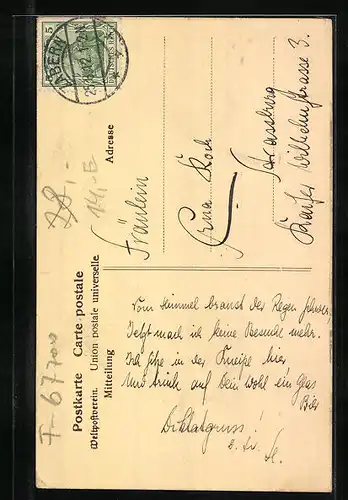 5
ZABERN
Postkarte Carte postale
Weltpostverein. Union postale universelle.
Mitteilung
Adresse
Fräulein
Erna Koch
Strassburg
Kaiser Wilhelmstrasse 3.
Vom Himmel braust der Regen schwer,
Jetzt mach ich keine Besuche mehr.
Ich sitze in der Kneipe hier
Und trink auf Dein Wohl ein Glas
Bier
28,-
14,-E
F-67700